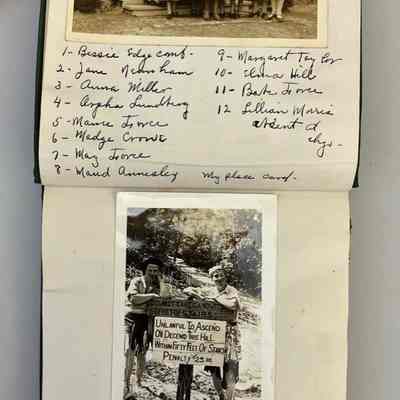 1 - Bessie Edgecomb -
2 - Jane Newnham
3 - Anna Miller
4 - Orpha Lundberg
5 Mame Force
6 - Madge Crowe
7 - May Force
8 - Maud Annesley
9 - Margaret Taylor
10 - Elma Hill
11 - Babe Force
12 Lillian Morris
at dent d
chgo -
My place card -
UNLAWFUL TO ASCEND
OR DESCEND THIS HILL
WITHIN FIFTY FEET OF STAIRS
PENALTY $25.00